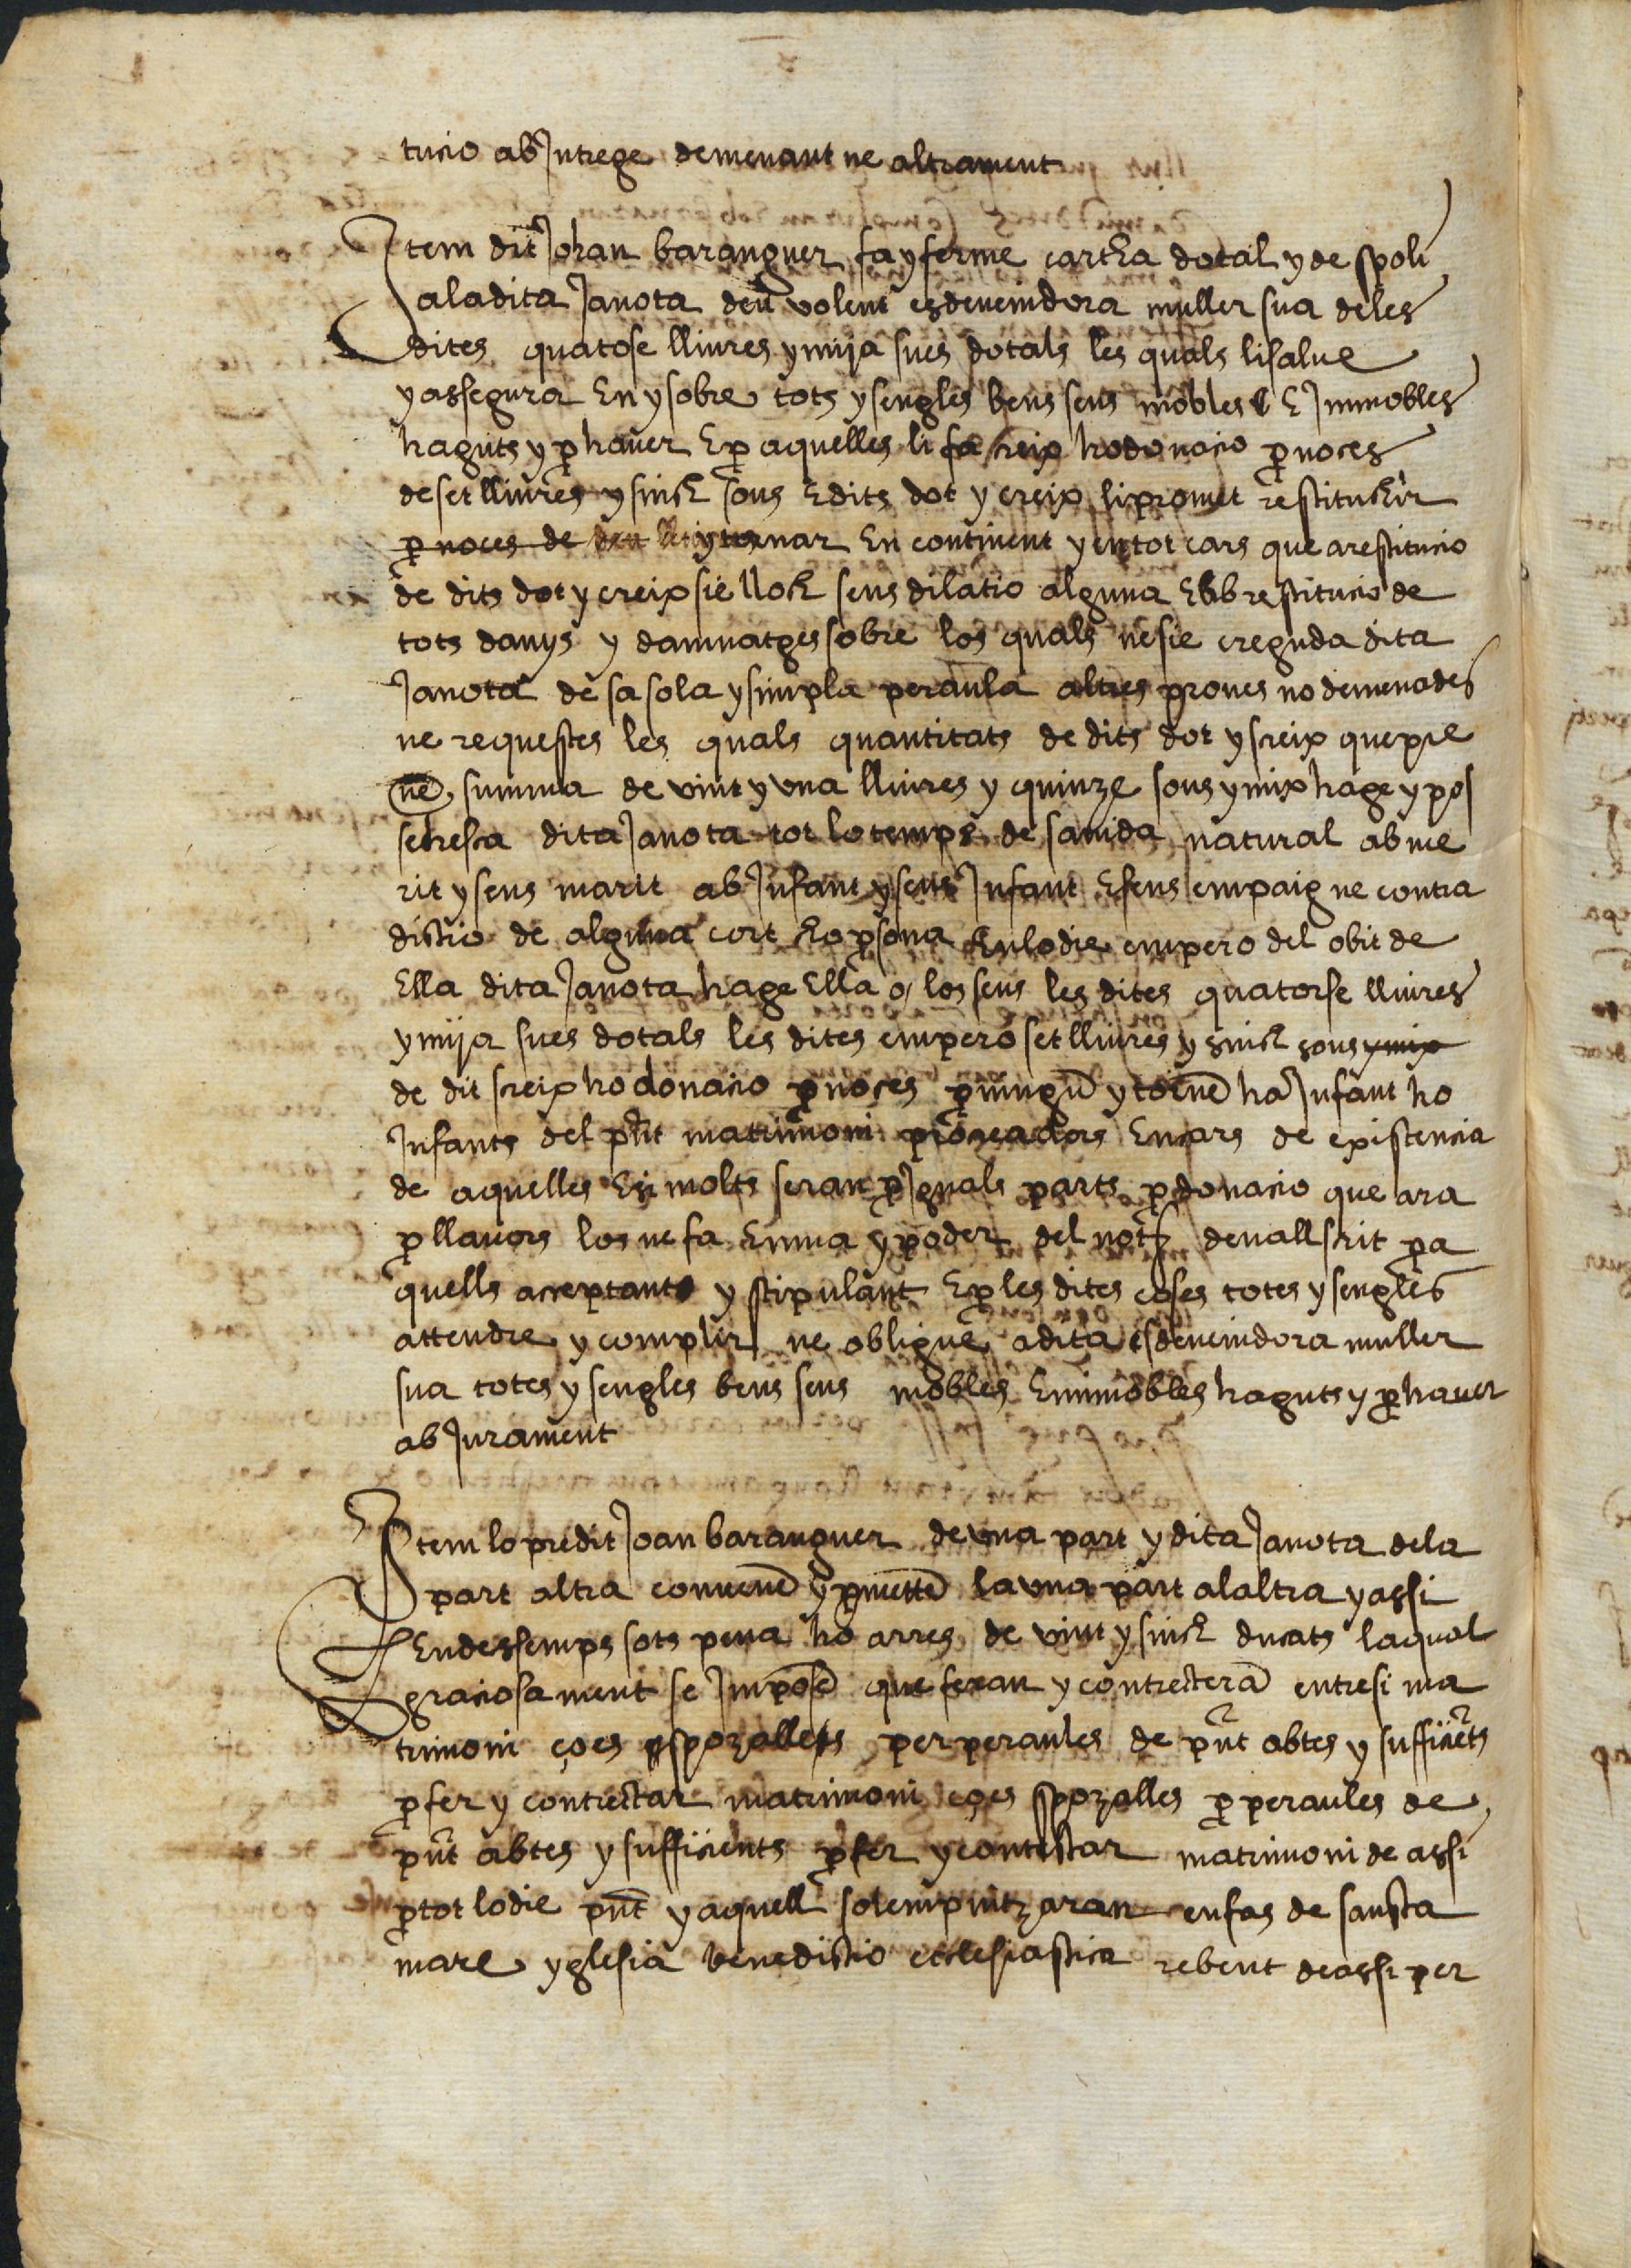 tucio ab Integre demenant ne altrament
Item dit Johan baranguer fa y ferme cartha dotal y de spoli
a la dita Janota deu volent esdevenidora muller sua de les
dites quatose lliures y mija sues dotals les quals li salve
y assegura En y sobre tots y sengles bens seus mobles E Immobles
haguts y p haver E p aquelles li fa creix ho donacio p noces
de set lliures y sinch sous E dits dot y creix li promet restituhir
p noces de y tornar En continent y en tot cars que a restitucio
de dits dot y creix sie lloch sens dilatio alguna E ab restitucio de
tots danys y damnatges sobre los quals ne sie creguda dita
Janota de sa sola y simpla peraula altres proves no demenades
ne requestes les quals quantitats de dits dot y screix que pre
nē summa de vint y una lliures y quinze sous y mix hage y pos
sehesca dita Janota tot lo temps de sa vida natural ab me
rit y sens marit ab Infant y sens Infant E sens empaig ne contra
dictio de alguna cort ho psona En lo die empero del obit de
Ella dita Janota hage Ella o los seus les dites quatorse lliures
y mija sues dotals les dites empero set lliures y sinch sous y mix
de dit screix ho donacio p noces pvingū y tornē ha Infant ho
Infants del pnt matrimoni procreadors En cars de existencia
de aquelles E si molts seran p Iguals parts p donacio que ara
p llavors los ne fa En ma y poder del not devall scrit p a
quells acceptant y stipulant E p les dites coses totes y sengles
attendre y complir ne obligue a dita esdevenidora muller
sua totes y sengles bens seus mobles E immobles haguts y p haver
ab Jurament
Item lo predit Joan baranguer de una part y dita Janota de la
part altra convenē y pmettē la una part a l altra y assi
Endessemps sots pena ho arres de vint y sinch ducats la qual
graciosament se Imposē que feran y contrecterā entre si ma
trimoni ço es sposalles per peraules de pnt abtes y sufficiēts
p fer y contrectar matrimoni ço es sposalles p peraules de
pnt abtes y sufficients p fer y contrectar matrimoni de assi
p tot lo die pnt y aquell solempnitzaran en fas de sancta
mare yglesia benedictio ecclesiastica rebent de assi per